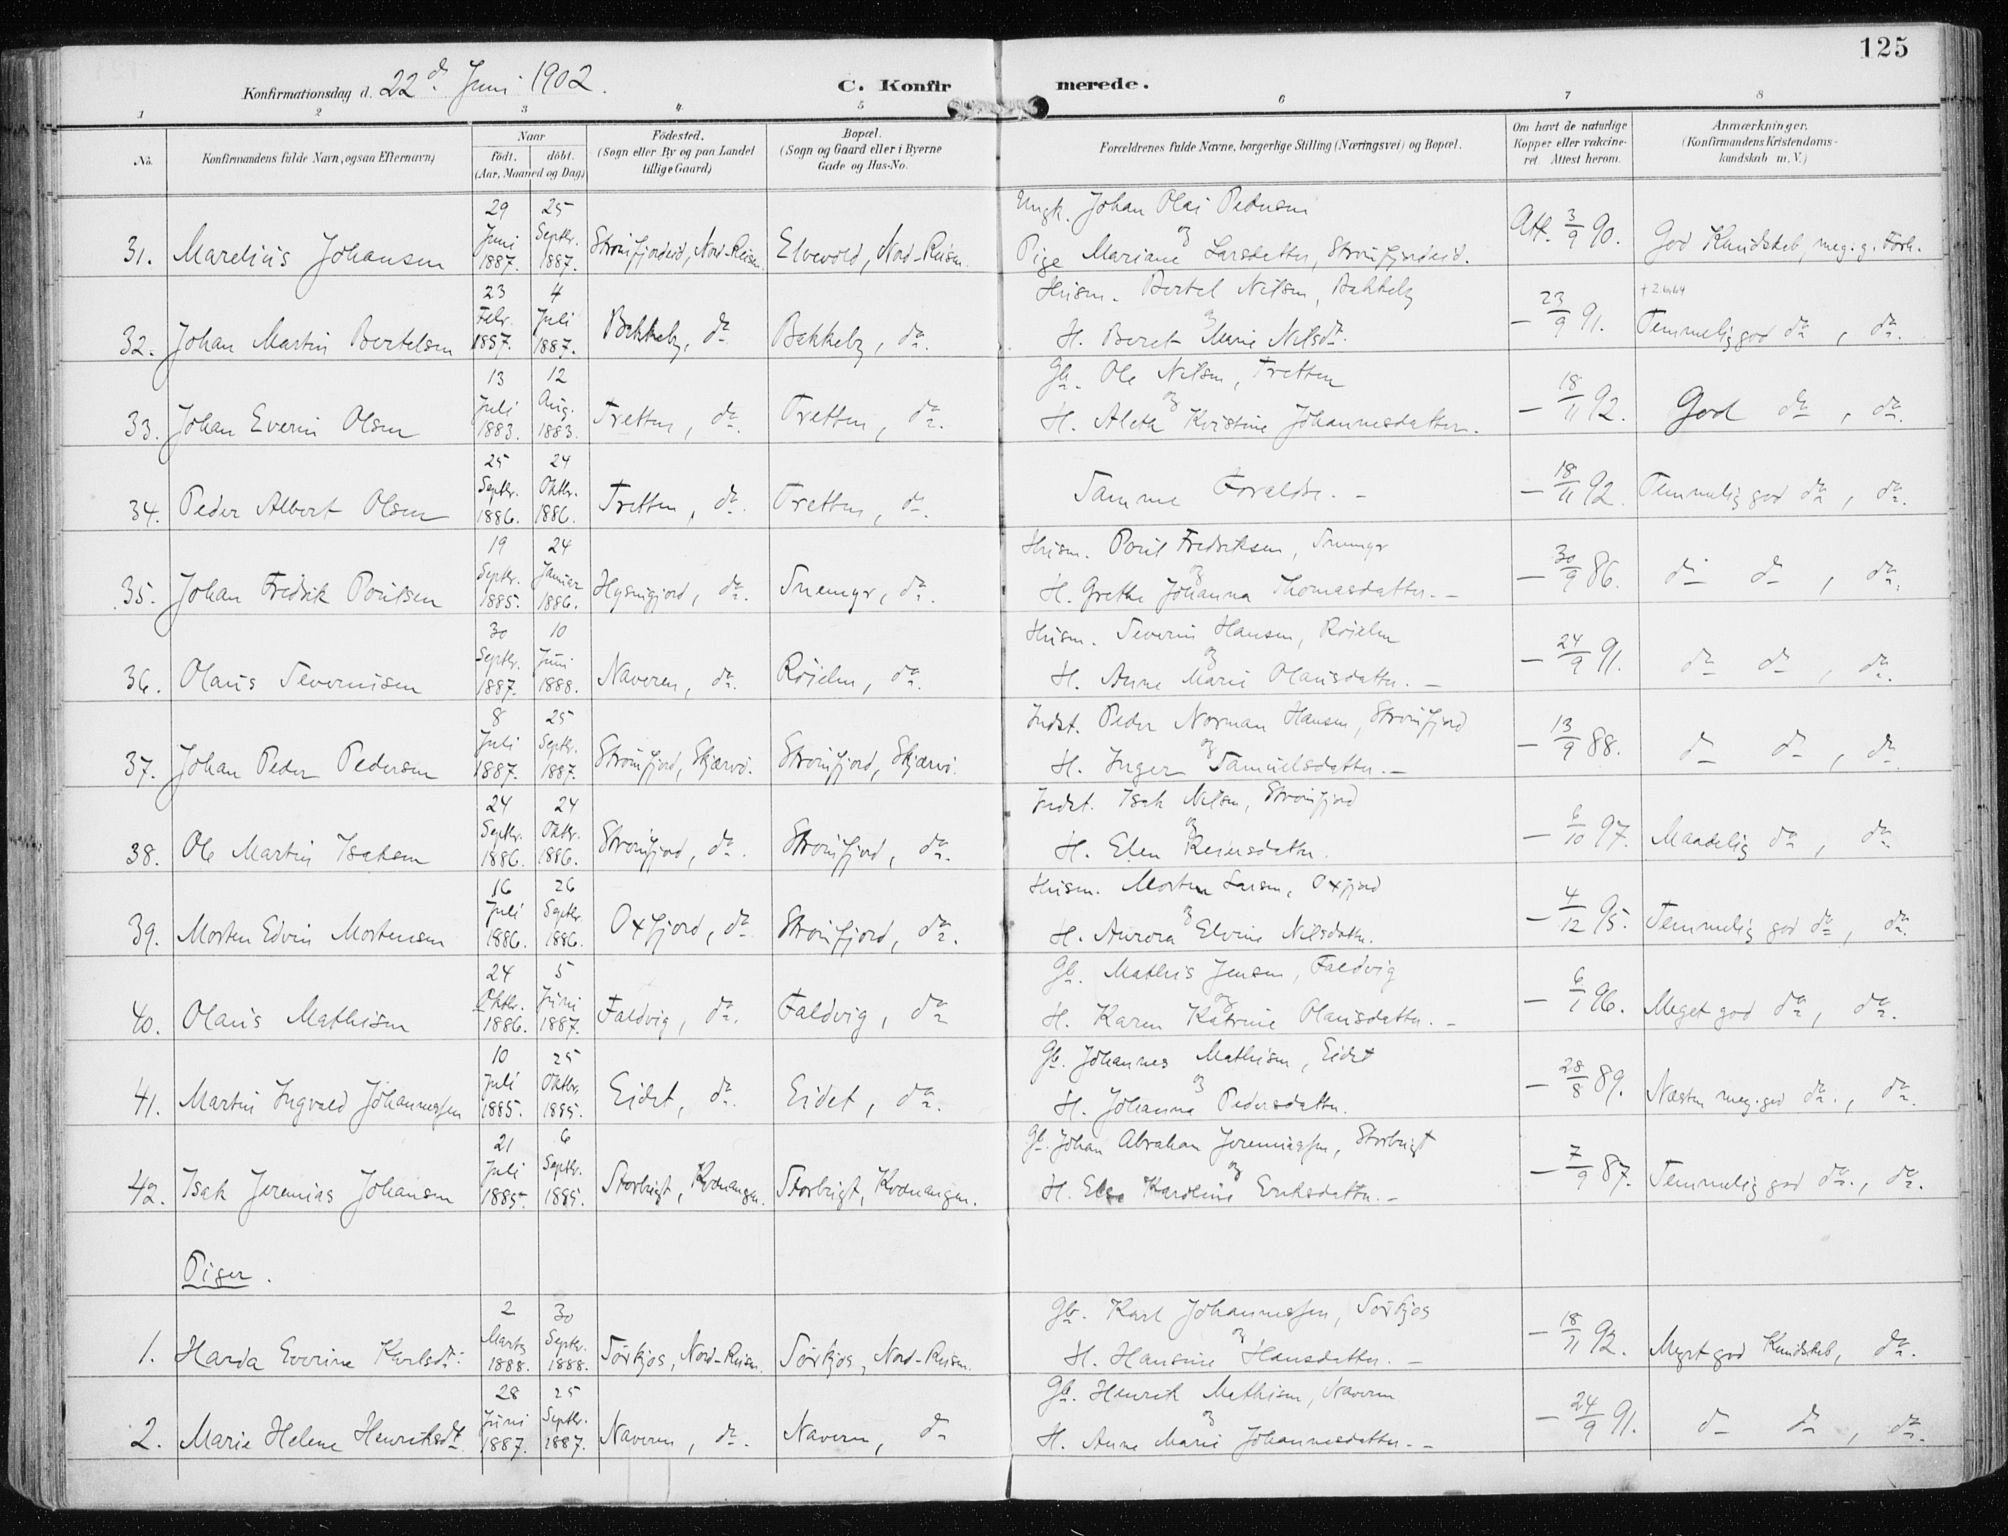 125
Konfirmationsdag d. 22d. Juni 1902.
C. Konfirmerede.
1 2 3 4 5 6 7 8
No.
Konfirmandens fulde Navn, ogsaa Efternavn,
Naar
født. døbt.
(Aar, Maaned og Dag)
Fødested.
(Sogn eller By og paa Landet
tillige Gaard)
Bopæl.
(Sogn og Gaard eller i Byerne
Gade og Hus-No.
Forældrenes fulde Navne, borgerlige Stilling (Næringsvei) og Bopæl.
Om havt de naturlige
Kopper eller vakcine-
ret. Attest herom.
Anmærkninger.
(Konfirmandens Kristendoms-
kundskab m. V.)
31. Marelius Johansen 29 Juni 1887. 25 Septbr. 1887. Straumfjordeid, Nord-Reisen Elvevold, Nord-Reisen Ungk. Johan Olai Pedersen og Pige Mariane Larsdatter, Straumfjordeid. Att. 3/9 90. God Kundskab, meg. g. Forh.
32. Johan Martin Bertelsen 23 Febr. 1887. 4 Juli 1887. Bakkeby, do Bakkeby, do. Husm. Bertel Nilsen, Bakkeby og H. Beret Marie Nilsdt. – 23/9 91. Temmelig god do, do.
33. Johan Everin Olsen 13 Juli 1883. 12 Aug. 1883. Tretten, do. Tretten, do. Gb. Ole Nilsen, Tretten og H. Aleta Kristine Johannesdatter. – 18/11 92. God do, do.
34. Peder Albert Olsen 25 Septbr. 1886. 24 Oktbr. 1886. Tretten, do. Tretten, do. Samme Forældre. – – 18/11 92. Temmelig god do, do.
35. Johan Fredrik Poulsen 19 Septbr. 1885. 24 Januar 1886. do. Snemyr, do. Husm. Poul Fredriksen, Snemyr og H. Grethe Johanna Thomasdatter. – – 30/9 86. do do, do.
36. Olaus Severinsen 30 Septbr. 1887. 10 Juni 1888. Naveren, do. Røielen, do. Husm. Severin Hansen, Røielen og H. Anne Marie Olausdatter. – – 24/9 91. do do, do.
37. Johan Peder Pedersen 8 Juli 1887. 25 Septbr. 1887. Straumfjord, Skjærvø. Straumfjord, Skjærvø. Indst. Peder Norman Hansen, Straumfjord og H. Inger Samuelsdatter. – – 13/9 88. do do, do
38. Ole Martin Isaksen 24 Septbr. 1886. 24 Oktbr. 1886. Straumfjord, do. Straumfjord, do. Indst. Isak Nilsen, Straumfjord og H. Elen Reiersdatter. – 6/10 97. Maadelig do, do
39. Morten Edvin Mortensen 16 Juli 1886. 26 Septbr. 1886. Oxfjord, do Straumfjord, do. Husm. Morten Larsen, Oxfjord og H. Aurora Elvine Nilsdatter. – 4/12 95. Temmelig god do, do.
40. Olaus Mathisen 24 Oktbr. 1886. 5 Juni 1887. Faldvig, do. Faldvig, do Gb. Mathis Jensen, Faldvig og H. Karen Katrine Olausdatter. – – 6/1 96. Meget god do, do.
41. Martin Ingvald Johannessen 10 Juli 1885. 25 Oktbr. 1885. Eidet, do. Eidet, do. Gb. Johannes Mathisen, Eidet og H. Johanna Pedersdatter. – 28/8 89. Næsten meg. god do., do.
42. Isak Jeremias Johansen 21 Juli 1885. 6 Septbr. 1885. Storbugt, Kvænangen. Storbugt, Kvænangen. Gb. Johan Abraham Jeremiassen, Storbugt og H. Else Karoline Eriksdatter. – – 7/9 87. Temmelig god do., do.
Piger.
1. Harda Everine Karlsdt. 2 Marts 1888. 30 Septbr. 1888. Sørkjos, Nord-Reisen. Sørkjos, Nord-Reisen. Gb. Karl Johannessen, Sørkjos og H. Hansine Hansdatter. – – 18/11 92. Meget god Kundskab, do.
2. Marie Helene Henriksdt. 28 Juni 1887. 25 Septbr. 1887. Naveren, do. Naveren, do Gb. Henrik Mathisen, Naveren og H. Anne Marie Johannesdatter. – – 24/9 91. do do, do.